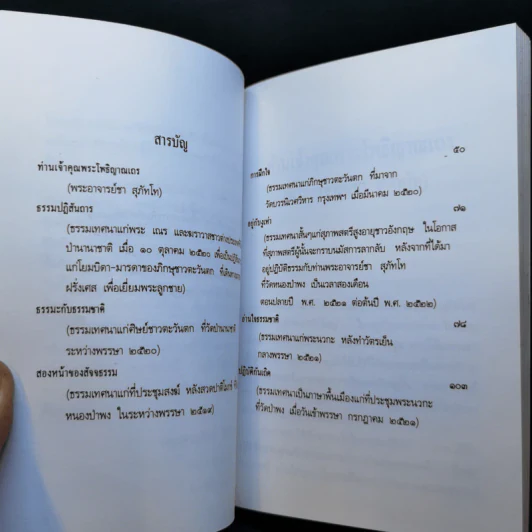 สารบัญ
ท่านเจ้าคุณพระโพธิญาณเถร
(พระอาจารย์ชา สุภัทโท)
ธรรมปฏิสันถาร
(ธรรมเทศนาแก่พระ เณร และฆราวาสชาวต่างประเทศที่
ป่านานาชาติ เมื่อ ๑๐ ตุลาคม ๒๕๒๐ เพื่อเป็นปฏิสันถาร
แก่โยมบิดา-มารดาของภิกษุชาวตะวันตก ที่เดินทางจาก
ฝรั่งเศส เพื่อเยี่ยมพระลูกชาย)
ธรรมะกับธรรมชาติ
(ธรรมเทศนาแก่ศิษย์ชาวตะวันตก ที่วัดป่านานาชาติ
ระหว่างพรรษา ๒๕๒๐)
สองหน้าของสัจธรรม
(ธรรมเทศนาแก่ที่ประชุมสงฆ์ หลังสวดปาติโมกข์
หนองป่าพง ในระหว่างพรรษา ๒๕๑๙)
การฝึกใจ ๕๐
(ธรรมเทศนาแก่ภิกษุชาวตะวันตก ที่มาจาก
วัดบวรนิเวศวิหาร กรุงเทพฯ เมื่อมีนาคม ๒๕๒๐)
อยู่กับงูเห่า ๗๑
(ธรรมเทศนาสั้นๆแก่สุภาพสตรีสูงอายุชาวอังกฤษ ในโอกาส
ที่สุภาพสตรีผู้นั้นจะกราบนมัสการลากลับ หลังจากที่ได้มา
อยู่ปฏิบัติธรรมกับท่านพระอาจารย์ชา สุภัทโท
ที่วัดหนองป่าพง เป็นเวลาสองเดือน
ตอนปลายปี พ.ศ. ๒๕๒๑ ต่อต้นปี พ.ศ. ๒๕๒๒)
อ่านใจธรรมชาติ ๗๔
(ธรรมเทศนาแก่พระนวกะ หลังทำวัตรเย็น
กลางพรรษา ๒๕๒๑)
ปฏิบัติกันเถิด ๑๐๓
(ธรรมเทศนาเป็นภาษาพื้นเมืองแก่ที่ประชุมพระนวกะ
ที่วัดป่าพง เมื่อวันเข้าพรรษา กรกฎาคม ๒๕๒๑)